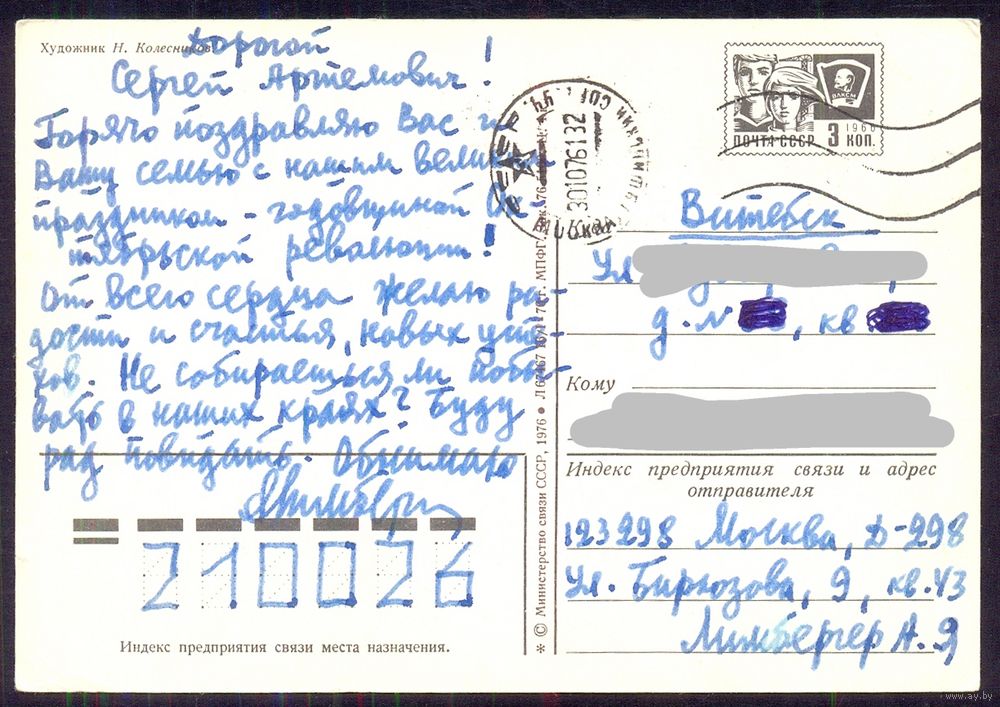 Художник Н. Колесников
Дорогой
Сергей Артемович!
Горячо поздравляю Вас и
Вашу семью с нашим великим
праздником - годовщиной Ок-
тябрьской революции!
От всего сердца желаю ра-
дости и счастья, новых успе-
хов. Не собираетесь ли побы-
вать в наших краях? Буду
рад повидать. Обнимаю
210026
Индекс предприятия связи места назначения.
* © Министерство связи СССР, 1976 •
ВЛКСМ
1966
ПОЧТА СССР 3 КОП.
МОСКВА
3010761332
Витебск
Ул
д. №, кв
Кому
Индекс предприятия связи и адрес
отправителя
123298 Москва, Д-298
Ул. Бирюзова, 9, кв. 43
Лимбергер А. Я
www.ay.by